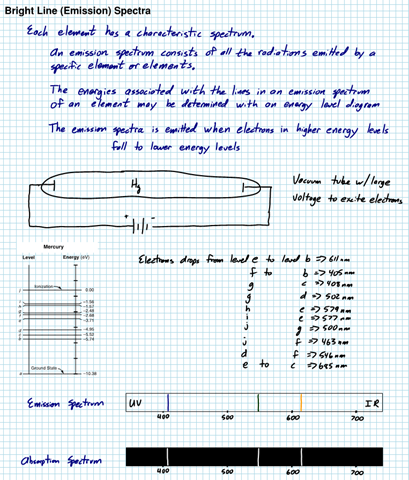 Bright Line (Emission) Spectra
Each element has a characteristic spectrum.
An emission spectrum consists of all the radiations emitted by a
specific element or elements.
The energies associated with the lines in an emission spectrum
of an element may be determined with an energy level diagram
The emission spectra is emitted when electrons in higher energy levels
fall to lower energy levels
Hg
Vacuum tube w/large
voltage to excite electrons
+ -
Mercury
Level Energy (eV)
Ionization
j 0.00
-1.56
-1.57
-2.48
-2.68
-3.71
-4.95
-5.52
-5.74
Ground State
a -10.38
Electrons drops from level e to level b => 611 nm
f to b => 405 nm
g c => 408 nm
g d => 502 nm
h e => 579 nm
i e => 577 nm
j g => 500 nm
j f => 463 nm
d f => 546 nm
e to c => 695 nm
Emission Spectrum
UV IR
400 500 600 700
Absorption Spectrum
400 500 600 700